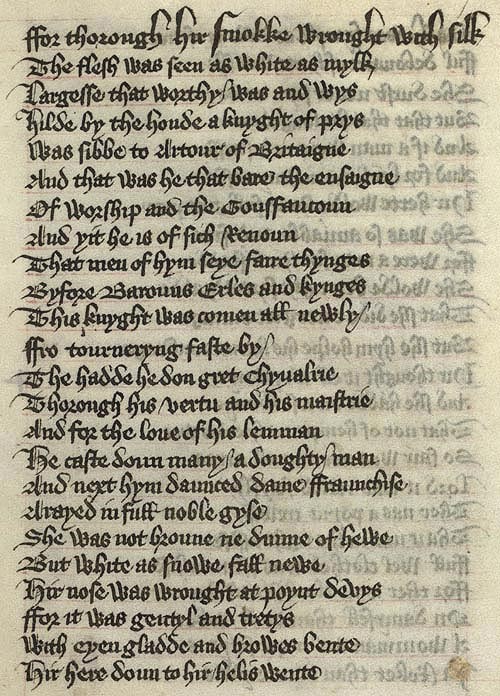 ffor thorough hir smokke wrought with silk
The flesh was seen as white as mylk
Largesse that worthy / was and wys
Hilde by the honde a knyght of prys
Was sibbe to Artour of Britaigne
And that was he that bare the ensaigne
Of worship and the Gouffaucoun
And yit he is of sich Renoun
That men of hym seye faire thynges
Byfore Barouns Erles and kynges
This knyght was comen all newly /
ffro tourneryng faste by /
The hadde he don gret Chyualrie
Thorough his vertu and his maistrie
And for the loue of his lemman
He caste doun many / a doughty / man
And next hym daunced dame ffraunchise
Arayed in full noble gyse
She was not broune ne dunne of hewe
But white as snowe fall newe
Hir nose was wrought at poynt devys
ffor it was gentyl and tretys
With eyen gladde and browes bente
Hir here doun to hir helis wente